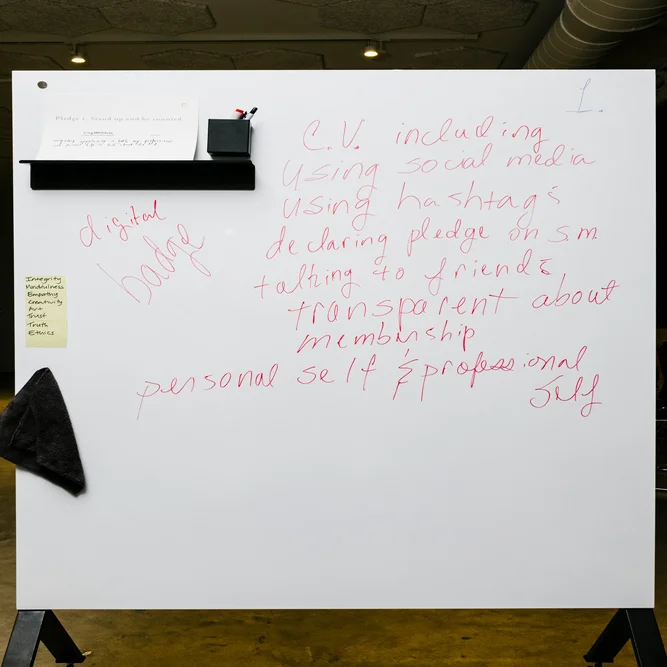 1.
Pledge 1. Stand up and be counted
C.V. including
using social media
using hashtags
declaring pledge on s.m
talking to friends
transparent about
membership
personal self & professional
self
digital
badge
Integrity
Mindfulness
Empathy
Creativity
Art
Trust
Truth
Ethics